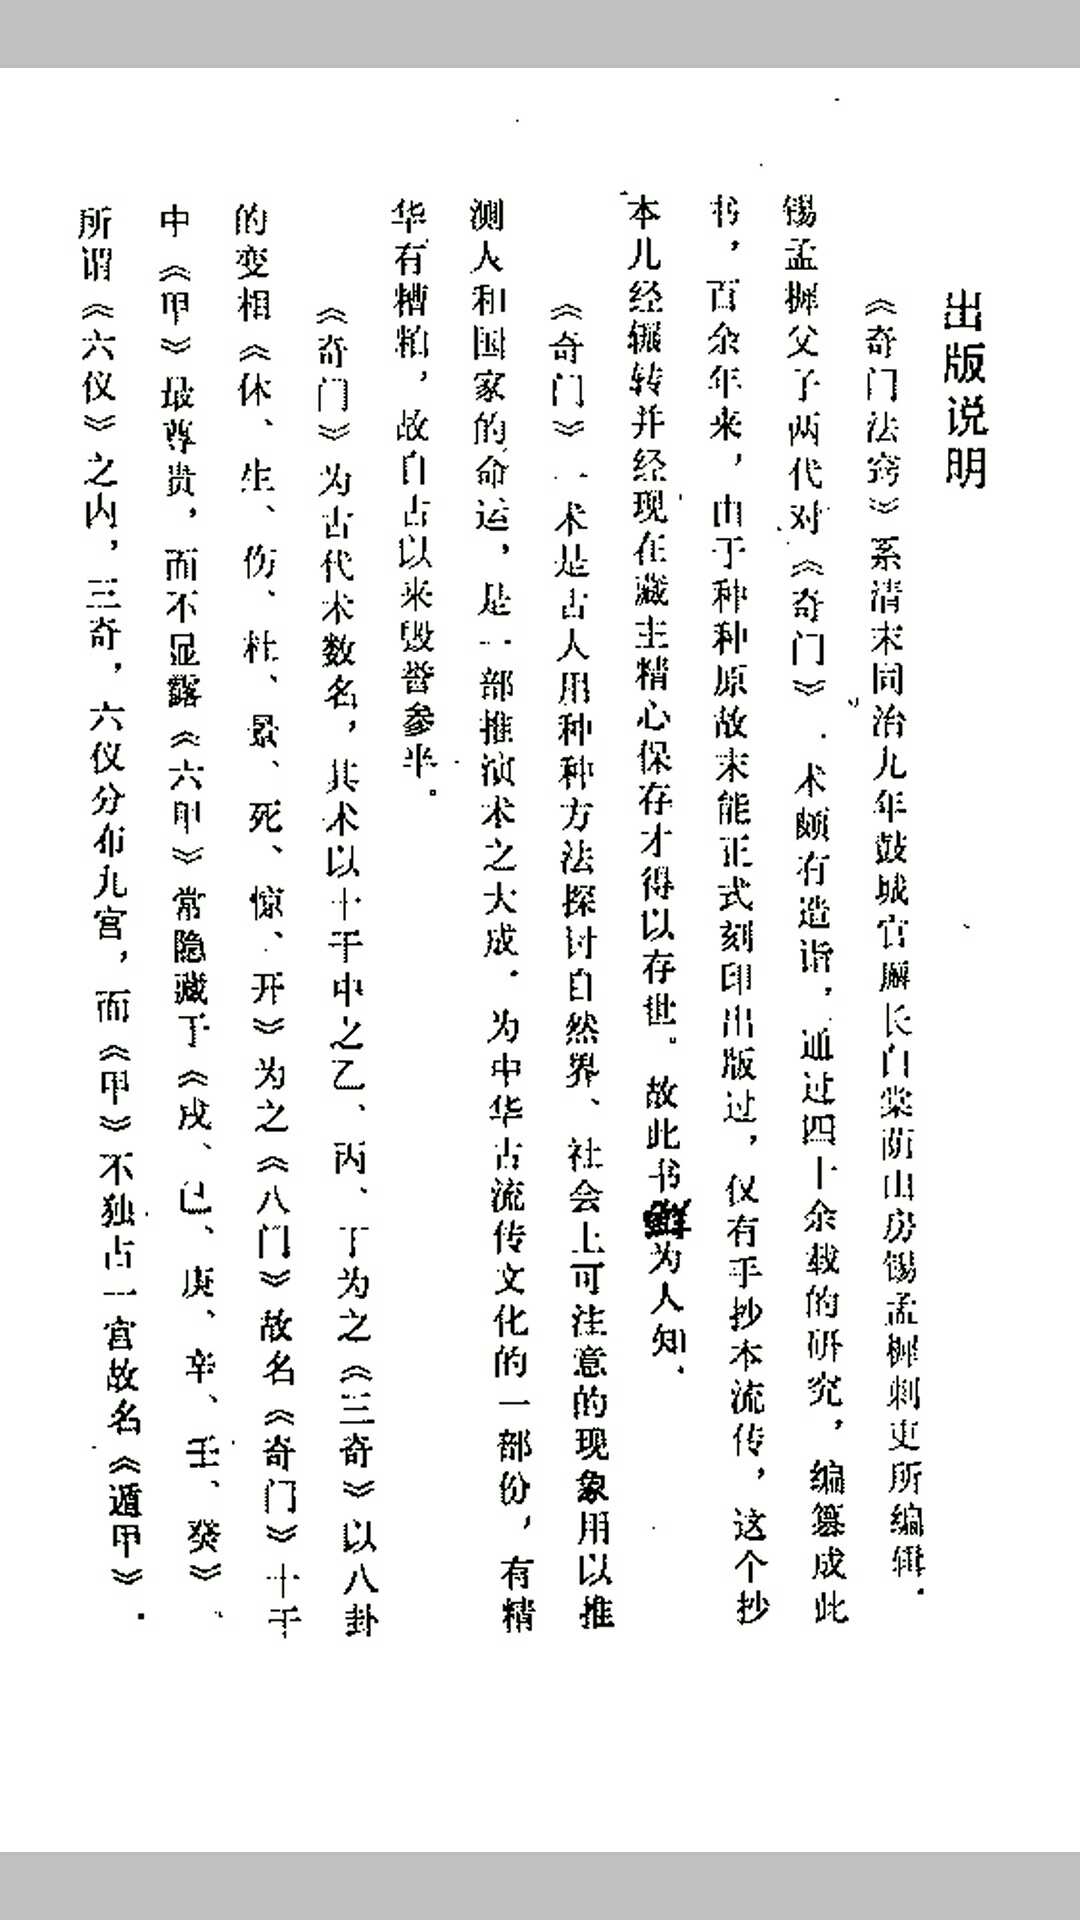 出版说明
《奇门法窍》系清末同治九年鼓城官廨长白棠荫山房锡孟樨刺吏所编辑.
锡孟樨父子两代对《奇门》一术颇有造诣，通过四十余载的研究，编篡成此
书，百余年来，由于种种原故末能正式刻印出版过，仅有手抄本流传，这个抄
本几经辗转并经现在藏主精心保存才得以存世。故此书鲜为人知.
《奇门》一术是古人用种种方法探讨自然界、社会上可注意的现象用以推
测人和国家的命运，是一部推演术之大成.为中华古流传文化的一部份，有精
华有糟粕，故自古以来毁誉参半。
《奇门》为古代术数名，其术以十干中之乙、丙、丁为之《三奇》以八卦
的变相《休、生、伤、杜、景、死、惊、开》为之《八门》故名《奇门》十干
中《甲》最尊贵，而不显露《六甲》常隐藏于《戊、己、庚、辛、壬、癸》、
所谓《六仪》之内，三奇，六仪分布九宫，而《甲》不独占一宫故名《遁甲》.